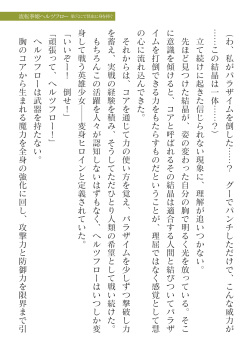 （わ、私がパラザイムを倒した……？　グーでパンチしただけで、こんな威力が
……この結晶は一体……？）
　立て続けに起きた信じられない現象に、理解が追いつかない。
　先ほど見つけた結晶が、姿の変わった自分の胸で明るく光を放っている。そこ
に意識を傾けると、コアと呼ばれるその結晶は適合する人間と結びついてパラザ
イムを打倒できる力をもたらすのだということが、理屈ではなく感覚として慧
の心に流れ込んできた。
　それからは、コアを通じて力の使い方を覚え、パラザイムを少しずつ撃破し力
を蓄え、実戦の経験を積み、そうしてただひとり人類の希望として戦い続けた。
　もちろんこの活躍を人々が認知しないはずもなく、ヘルツフローはいつしか変
身して戦う英雄少女――変身ヒロインと定義されていた。
「いいぞー！　倒せー！」
「頑張って、ヘルツフロー！」
　ヘルツフローは武器を持たない。
　胸のコアから生まれる魔力を全身の強化に回し、攻撃力と防御力を限界まで引